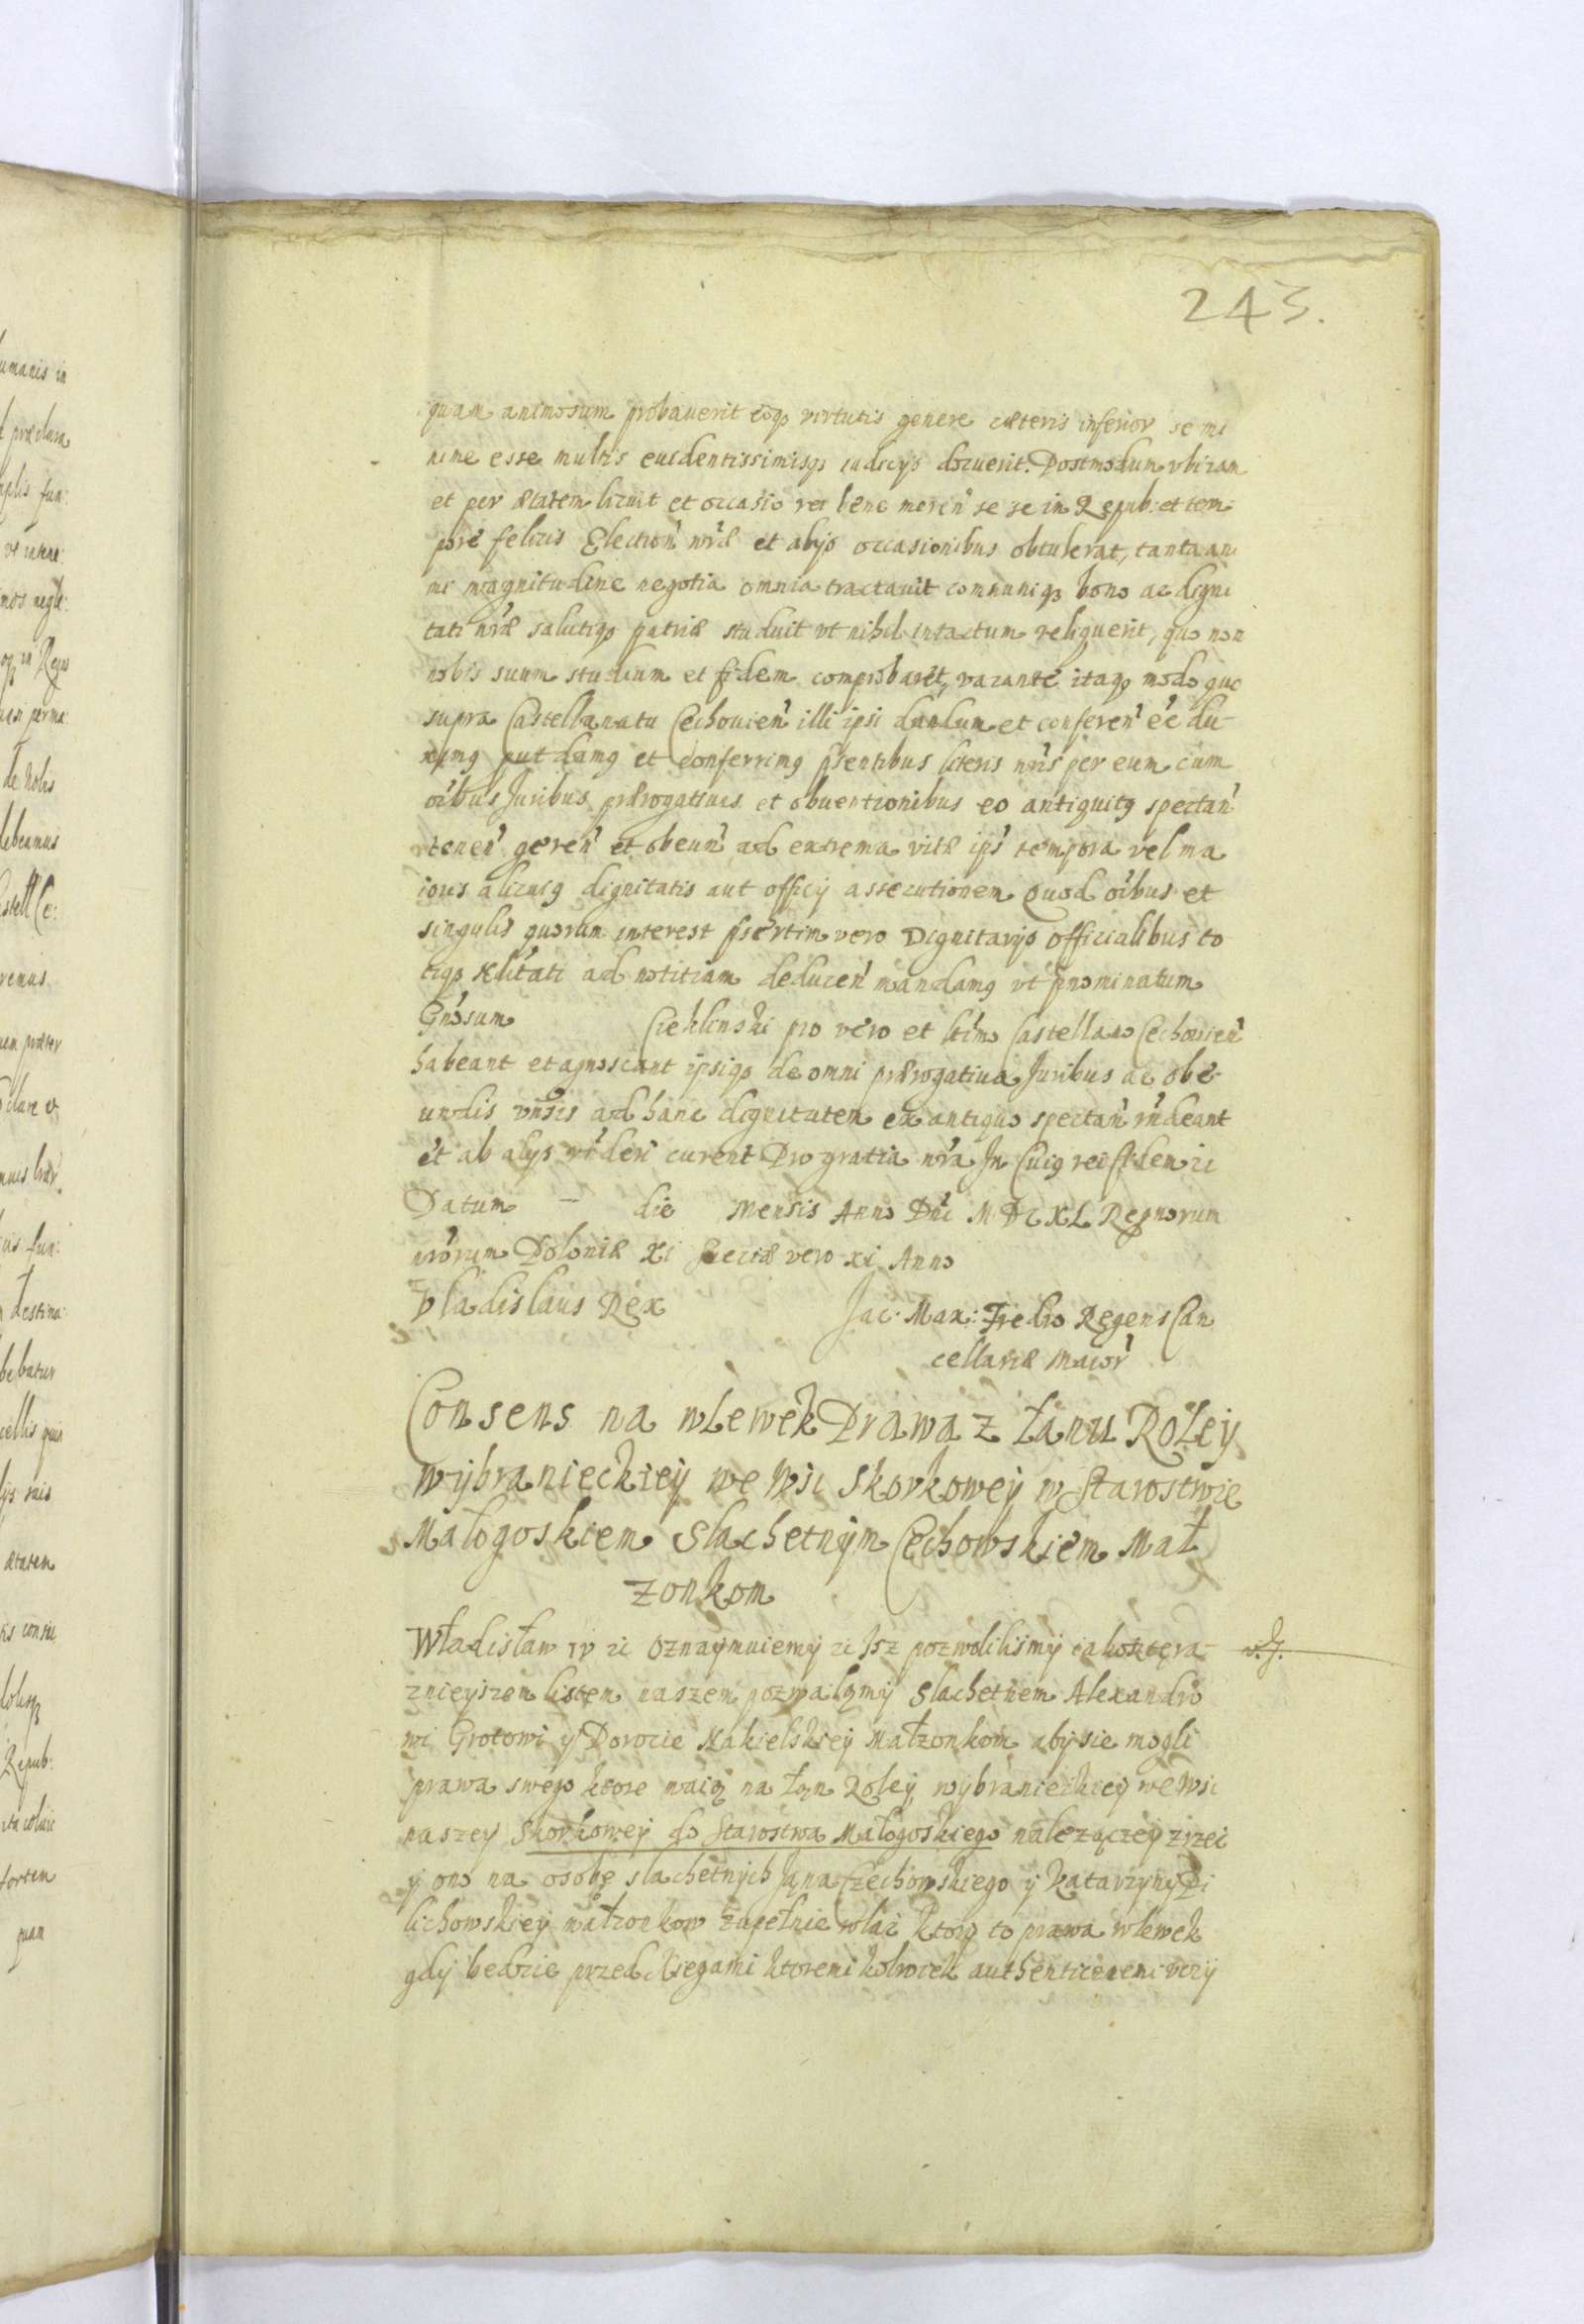 243.
quam animosum probauerit eoqꝫ virtutis genere cæteris inferior se mi
nime esse multis euidentissimisqꝫ iudicijs docuerit. Postmodum vbi iam
et per ætatem licuit et occasio rei bene meren̄ se se in Repub: et tem
pore felicis Election̄ nr̄æ et alijs occasionibus obtulerat, tanta ani
mi magnitudine negotia omnia tractauit communiqꝫ bono ac digni
tati nr̄æ salutiqꝫ patriæ studuit vt nihil intactum reliquerit, quo non
nobis suum studium et fidem comprobaret, vacante itaqꝫ modo quo
supra Castellanatu Cechouien̄ illi ipsi dandum et conferen̄ ēē du-
ximꝰ put damꝰ et conferrimꝰ pn̄tibus literis nr̄is per eum cum
oībus Juribus prærogatiuis et obuentionibus eo antiquitꝰ spectan̄
tenen̄ geren̄ et obeun̄ ad extrema vitæ ips̄ tempora vel ma
ioris alicuiꝰ dignitatis aut officij assecutionem Quod oībus et
singulis quorum interest psertim vero Dignitarijs officialibus to
tiqꝫ Nlitati ad notitiam deducen̄ mandamꝰ vt pnominatum
Gn̄osum Ciekliński pro vero et ltīmo Castellano Cechouien̄
habeant et agnoscant ipsiqꝫ de omni prærogatiua Juribus ac obe-
undis vn̄sis ad hanc dignitatem ex antiquo spectan̄ rn̄deant
et ab alijs rn̄deri curent Pro gratia nr̄a In Cuiꝰ rei fidem zc
Datum — die Mensis Anno Dn̄i MDCXL Regnorum
nr̄orum Poloniæ XI Sueciæ vero XI Anno
Vladislaus Rex Jac: Max: Fredro Regens Can
cellariæ Maior̄
Consens na wlewek Prawa z łanu Roley
wybranieckiey we Wsi Skorkowey w Starostwie
Małogoskiem Slachetnym Cechowskiem Mał
zonkom
Władisław IV zc Oznaymuiemy zc Isz pozwoliliśmy iakosz tęra-
znieyszem listem naszem pozwalamy Slachetnem Alexandro
wi Grotowi y Dorocie Makielskiey Małzonkom aby sie mogli
prawa swego ktore maią na łąn Roley wybranieckiey we wsi
naszey Skorkowey do Starostwa Małogoskiego nalezączey zrzec
y ono na osobę slachetnych Jana Czechowskiego y Katarzyny Pi
lichowskiey małzonkow zupełnie wlac ktory to prawa wlewek
gdy bedzie przed Xięgami ktoremi kolwiek authenticznemi vczy